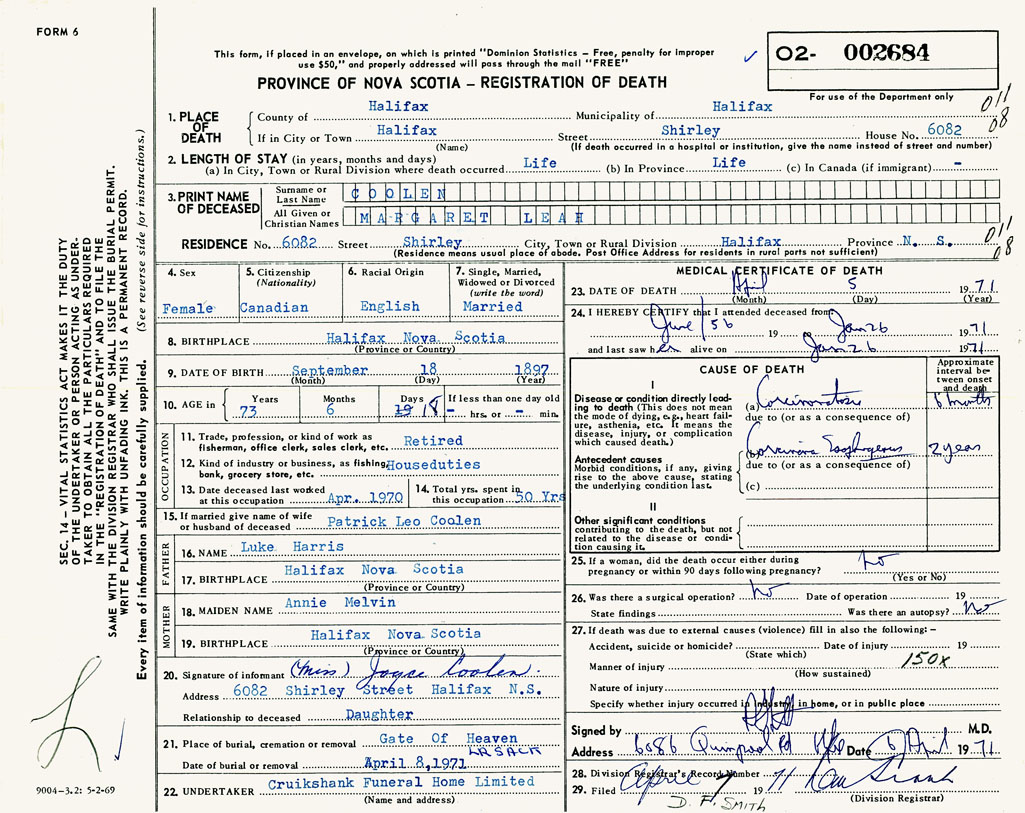 FORM 6
This form, if placed in an envelope, on which is printed "Dominion Statistics – Free, penalty for improper
use $50," and properly addressed will pass through the mail "FREE"
O2- 002684
PROVINCE OF NOVA SCOTIA – REGISTRATION OF DEATH
For use of the Department only
011
08
1. PLACE OF DEATH
County of Halifax Municipality of Halifax
If in City or Town Halifax Street Shirley House No. 6082
(Name) (If death occurred in a hospital or institution, give the name instead of street and number)
2. LENGTH OF STAY (in years, months and days)
(a) In City, Town or Rural Division where death occurred Life (b) In Province Life (c) In Canada (if immigrant) -
3. PRINT NAME OF DECEASED
Surname or Last Name COOLEN
All Given or Christian Names MARGARET LEAH
RESIDENCE No. 6082 Street Shirley City, Town or Rural Division Halifax Province N. S.
(Residence means usual place of abode. Post Office Address for residents in rural parts not sufficient)
011
08
4. Sex
Female
5. Citizenship
(Nationality)
Canadian
6. Racial Origin
English
7. Single, Married,
Widowed or Divorced
(write the word)
Married
8. BIRTHPLACE Halifax Nova Scotia
(Province or Country)
9. DATE OF BIRTH September 18 1897
(Month) (Day) (Year)
10. AGE in Years 73 Months 6 Days 19 18 If less than one day old - hrs. or - min.
OCCUPATION
11. Trade, profession, or kind of work as
fisherman, office clerk, sales clerk, etc. Retired
12. Kind of industry or business, as fishing, Houseduties
bank, grocery store, etc.
13. Date deceased last worked
at this occupation Apr. 1970
14. Total yrs. spent in
this occupation 50 Yrs
15. If married give name of wife
or husband of deceased Patrick Leo Coolen
FATHER
16. NAME Luke Harris
17. BIRTHPLACE Halifax Nova Scotia
(Province or Country)
MOTHER
18. MAIDEN NAME Annie Melvin
19. BIRTHPLACE Halifax Nova Scotia
(Province or Country)
20. Signature of informant (Miss) Joyce Coolen.
Address 6082 Shirley Street Halifax N.S.
Relationship to deceased Daughter
21. Place of burial, cremation or removal Gate Of Heaven
LR SACK
Date of burial or removal April 8,1971
22. UNDERTAKER Cruikshank Funeral Home Limited
(Name and address)
MEDICAL CERTIFICATE OF DEATH
23. DATE OF DEATH April 5 1971
(Month) (Day) (Year)
24. I HEREBY CERTIFY that I attended deceased from
June / 56 19 Jan 26 1971
and last saw her alive on Jan 26 1971
CAUSE OF DEATH
Approximate
interval be-
tween onset
and death
I
Disease or condition directly lead-
ing to death (This does not mean
the mode of dying, e.g., heart fail-
ure, asthenia, etc. It means the
disease, injury, or complication
which caused death.)
(a) Carcinomatosis 6 months
due to (or as a consequence of)
Carcinoma Esophagus 2 years
Antecedent causes
Morbid conditions, if any, giving
rise to the above cause, stating
the underlying condition last.
due to (or as a consequence of)
(c)
II
Other significant conditions
contributing to the death, but not
related to the disease or condi-
tion causing it.
25. If a woman, did the death occur either during
pregnancy or within 90 days following pregnancy? No
(Yes or No)
26. Was there a surgical operation? No Date of operation 19
State findings Was there an autopsy? No
27. If death was due to external causes (violence) fill in also the following: –
Accident, suicide or homicide? Date of injury 19
(State which)
Manner of injury 150X
(How sustained)
Nature of injury
Specify whether injury occurred in industry, in home, or in public place
Signed by M.D.
Address 6086 Quinpool Rd Hfx Date 6 April 1971
28. Division Registrar's Record Number
29. Filed April 7 1971
(Division Registrar)
D. F. SMITH
SEC. 14 – VITAL STATISTICS ACT MAKES IT THE DUTY
OF THE UNDERTAKER OR PERSON ACTING AS UNDER-
TAKER TO OBTAIN ALL THE PARTICULARS REQUIRED
IN THE "REGISTRATION OF DEATH" AND TO FILE THE
SAME WITH THE DIVISION REGISTRAR WHO SHALL ISSUE THE BURIAL PERMIT.
WRITE PLAINLY WITH UNFADING INK. THIS IS A PERMANENT RECORD.
Every item of information should be carefully supplied. (See reverse side for instructions.)
9004–3.2: 5-2-69